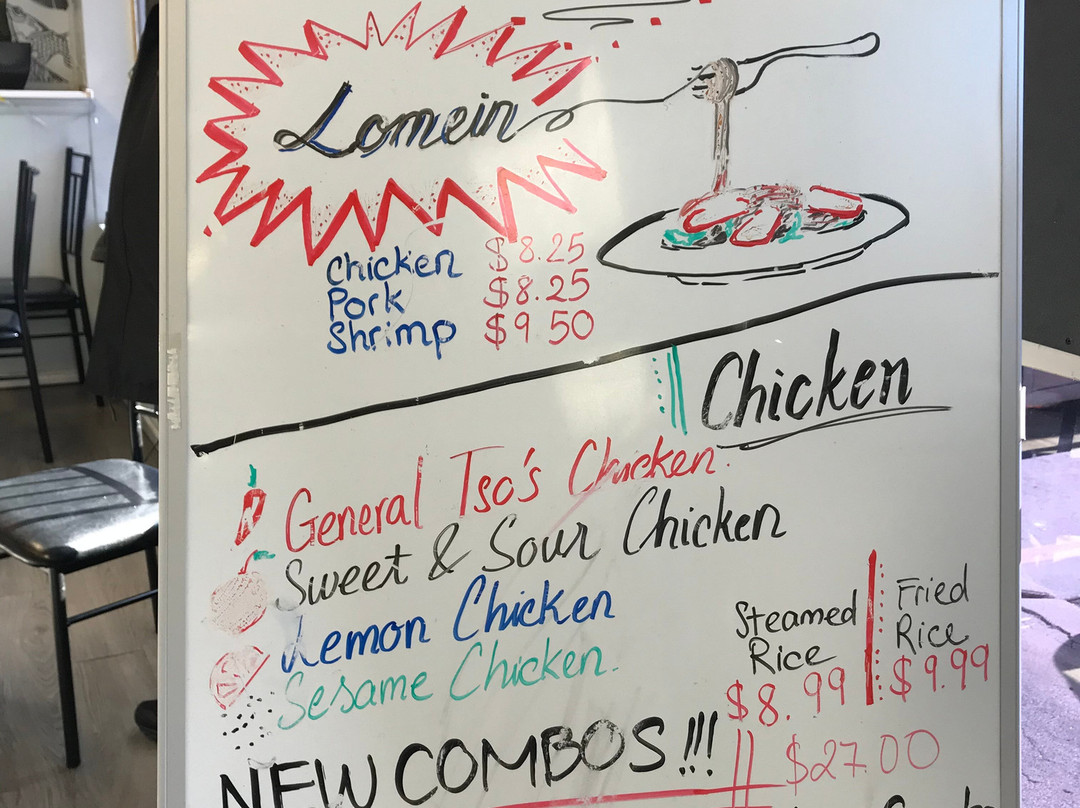 Lomein
Chicken $8.25
Pork $8.25
Shrimp $9 50
Chicken
General Tso's Chicken.
Sweet & Sour Chicken
Lemon Chicken
Sesame Chicken.
Steamed Rice $8.99
Fried Rice $9.99
NEW COMBOS!!! $27.00